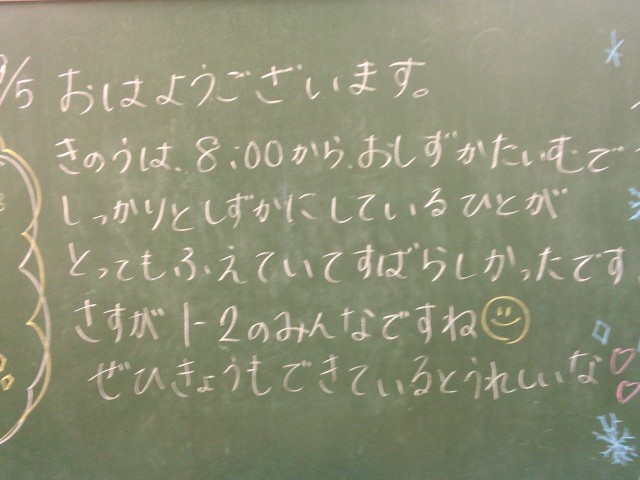 /5 おはようございます。
きのうは、8:00から、おしずかたいむで
しっかりとしずかにしているひとが
とってもふえていてすばらしかったです
さすが1-2のみんなですね
ぜひきょうもできているとうれしいな